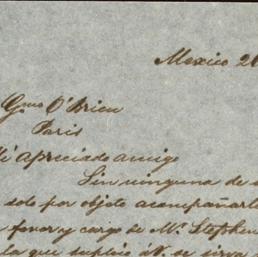 Mexico 2
Gmo O'Brien
Paris
Mi Apreciado amigo
Sin ninguna de s
solo por objeto acompañarle
favor y cargo de Mr. Stephen
la que suplico á V. se sirva